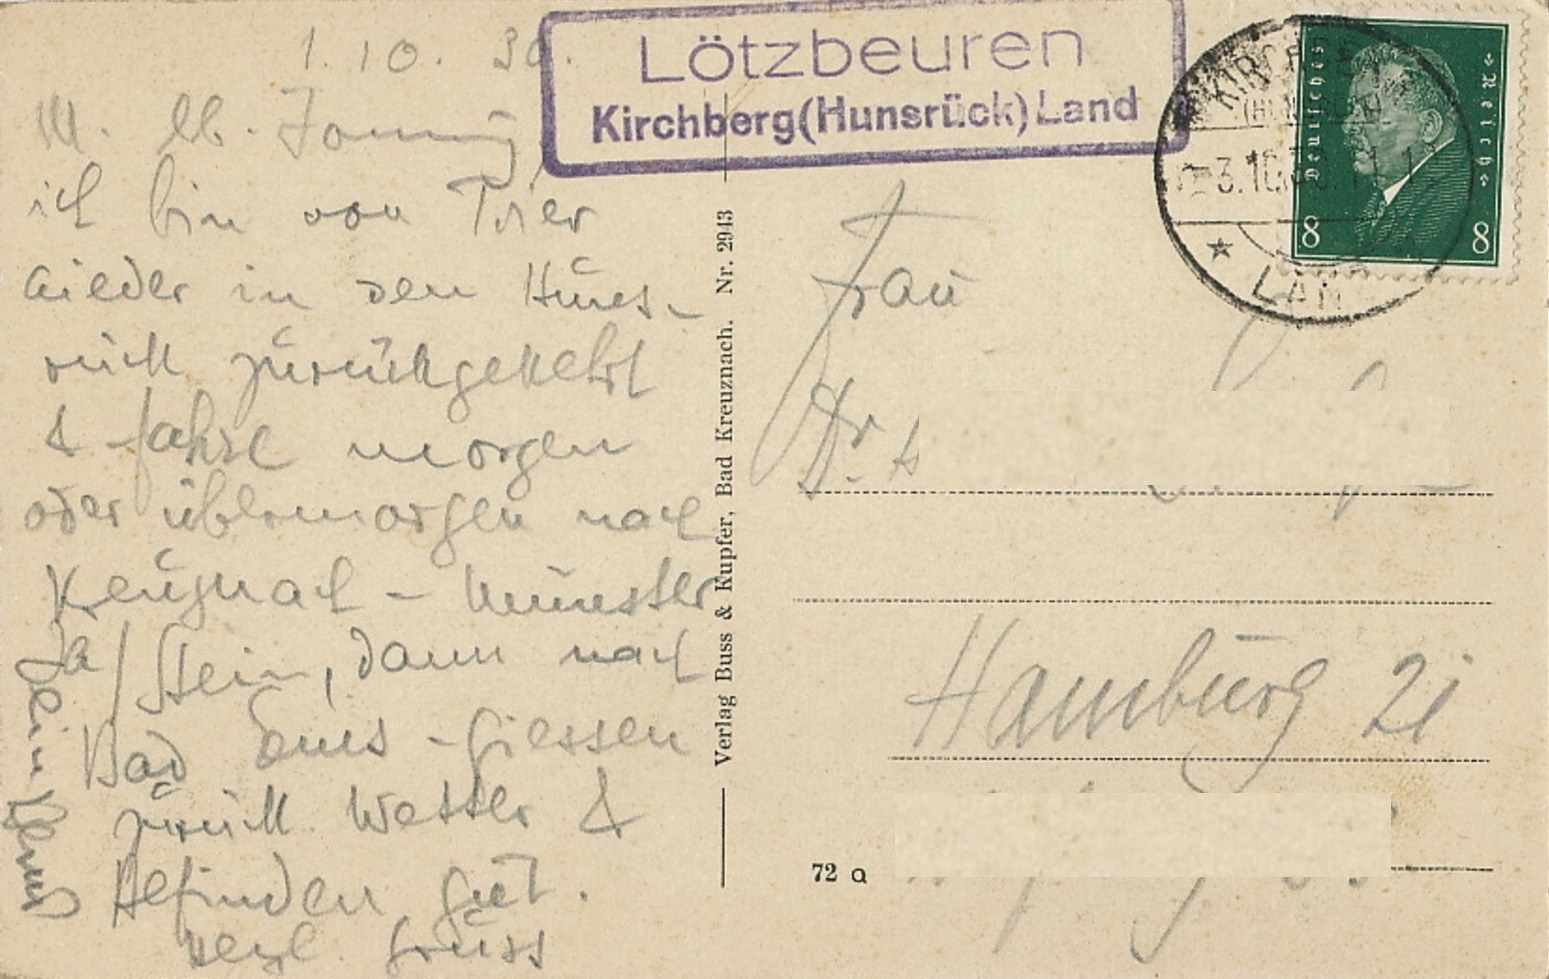 Lötzbeuren
Kirchberg(Hunsrück)Land
1. 10. 30.
ich bin von Trier
wieder in den Huns-
rück zurückgekehrt
& fahre morgen
oder übermorgen nach
Kreuznach - Münster
a/Stein, dann nach
Bad Ems - Giessen
zurück. Wetter &
Befinden gut.
herzl. Gruss
Dein
Verlag Buss & Kupfer, Bad Kreuznach. Nr. 2943
Deutsches Reich
8 8
KIRCHBERG
(HUNSRÜCK)
3.10.30.
LAND
Frau
Dr.
Hamburg 21
72 a